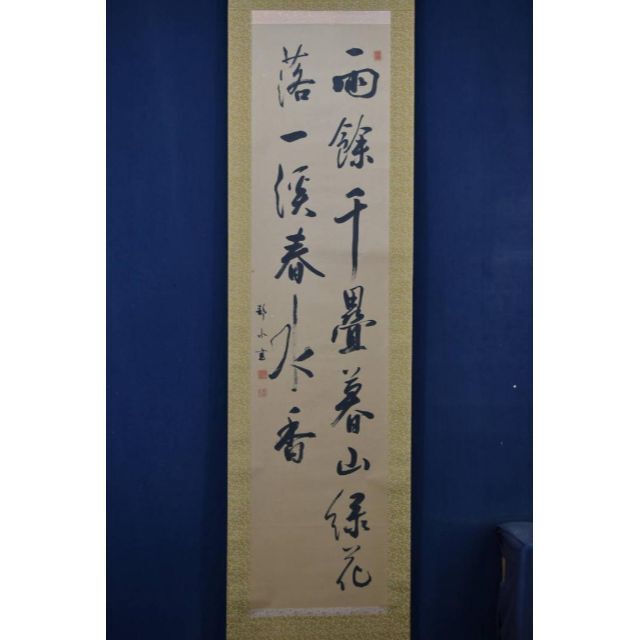 雨餘千疊暮山緑花
落一溪春水香